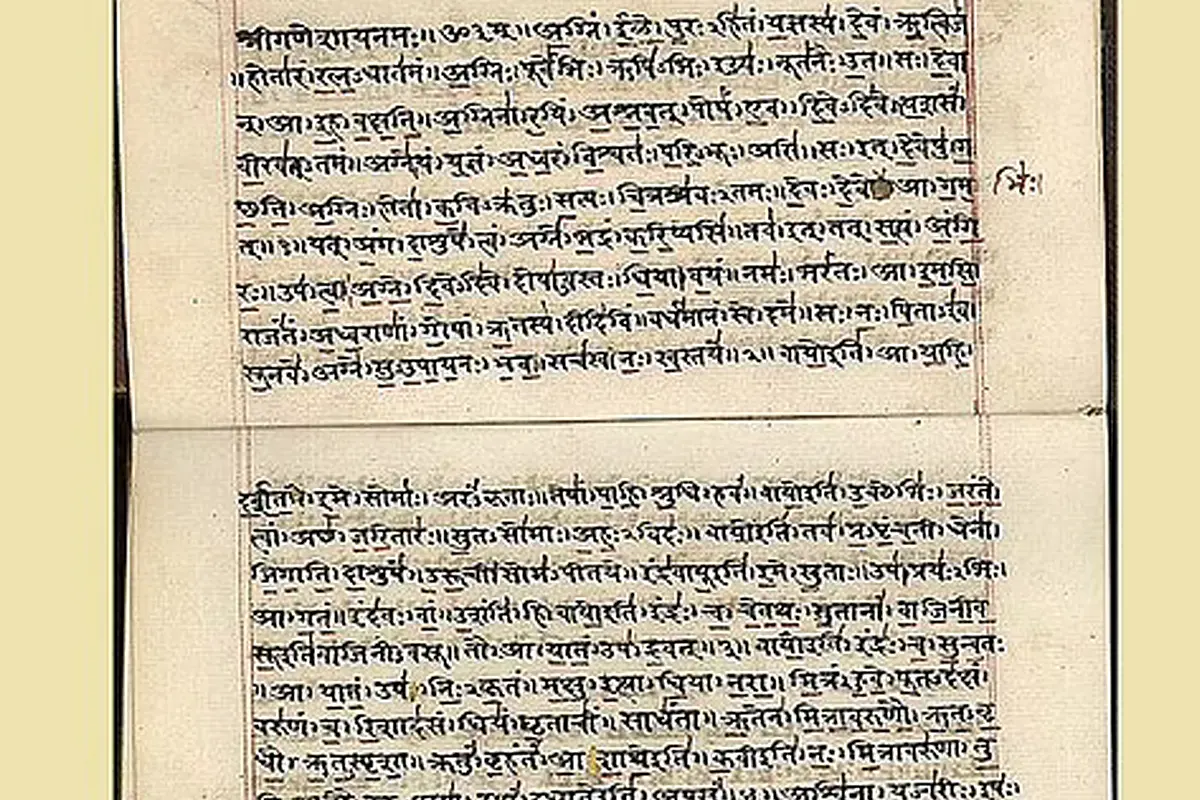 श्रीगणेशायनमः॥ ॐ३म्॥ अग्निं। ईळे। पुरःऽहितं। यज्ञस्य। देवं। ऋत्विजं
॥होतारं। रत्नऽधातमं॥ अग्निः। पूर्वेभिः। ऋषिभिः। ईड्यः। नूतनैः। उत॥ सः। देवा
न्। आ। इह। वक्षति॥ अग्निना। रयिं। अश्नवत्। पोषं। एव। दिवेऽदिवे। यशसं
वीरवत्ऽतमं॥ अग्ने। यं। यज्ञं। अध्वरं। विश्वतः। परिऽभूः। असि॥ सः। इत्। देवेषु। ग
च्छति॥ अग्निः। होता। कविऽक्रतुः। सत्यः। चित्रश्रवःऽतमः॥ देवः। देवे आ। गम भिः।
त्॥१॥ यत्। अंग। दाशुषे। त्वं। अग्ने। भद्रं। करिष्यसि॥ तव। इत्। तत्। सत्यं। अंगि
रः॥ उप। त्वा। अग्ने। दिवेऽदिवे। दोषाऽवस्तः। धिया। वयं॥ नमः। भरंतः। आ। इमसि
राजंतं। अध्वराणां। गोपां। ऋतस्य। दीदिविं॥ वर्धमानं। स्वे। दमे॥ सः। नः। पिताऽइव
सूनवे। अग्ने। सुऽउपायनः। भव॥ सचस्व। नः। स्वस्तये॥२॥ वायोइति। आ। याहि।
दर्शत। इमे। सोमाः। अरंऽकृताः॥ तेषां। पाहि। श्रुधि। हवं॥ वायोइति। उक्थेभिः। जरंते
त्वां। अच्छ। जरितारः॥ सुतऽसोमाः। अहःऽविदः॥ वायोइति। तव। प्रऽपृंचती। धेना।
जिगाति। दाशुषे। उरूची। सोमऽपीतये॥ इंद्रवायूइति। इमे। सुताः॥ उप। प्रयःऽभिः।
आ। गतं॥ इंदवः। वां। उशंति। हि। वायोइति। इंद्रः। च। चेतथः। सुतानां। वाजिनीव
सूइतिवाजिनीऽवसू॥ तौ। आ। यातं। उप। द्रवत्॥३॥ वायोइति। इंद्रः। च। सुन्वतः
॥आ। यातं। उप। निःऽकृतं॥ मक्षु। इत्था। धिया। नरा॥ मित्रं। हुवे। पूतऽदक्षं।
वरुणं। च। रिशादसं॥ धियं। घृताचीं। साधंता॥ ऋतेन। मित्रावरुणौ। ऋतऽवृ
धौ। ऋतऽस्पृशा॥ क्रतुं। बृहंतं। आ। शाथेइति॥ कवीइति। नः। मित्रावरुणा। तु
अश्विना। यज्वरीः। इषः।